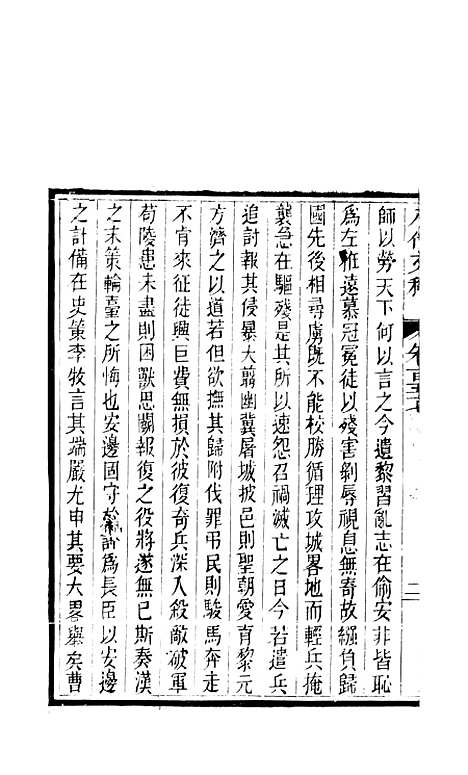 師以勞天下何以言之今遺黎習亂志在偷安非皆恥
爲左衽遠慕冠冕徒以殘害剝辱視息無寄故繈負歸
國先後相尋虜旣不能校勝循理攻城畧地而輕兵掩
襲急在驅殘是其所以速怨召禍滅亡之日今若遣兵
追討報其侵暴大翦幽冀屠城披邑則聖朝愛育黎元
方濟之以道若但欲撫其歸附伐罪弔民則駿馬奔走
不肯來征徒興巨費無損於彼復奇兵深入殺敵破軍
苟陵患未盡則困獸思鬭報復之役將遂無已斯秦漢
之末策輪臺之所悔也安邊固守於計爲長臣以安邊
之計備在史策李牧言其端嚴尤申其要大畧舉矣曹